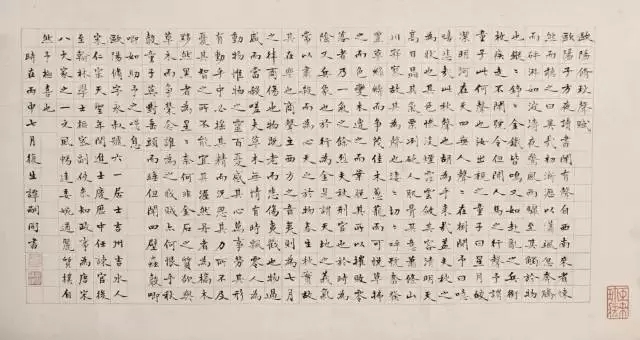 歐陽脩秋聲賦
歐陽子方夜讀書聞有聲自西南來者悚
然而聽之曰異哉初淅瀝以蕭颯忽奔騰
而砰湃如波濤夜驚風雨驟至其觸於物
也鏦鏦錚錚金鐵皆鳴又如赴敵之兵銜
枚疾走不聞號令但聞人馬之行聲予謂
童子此何聲也汝出視之童子曰星月皎
潔明河在天四無人聲聲在樹間予曰噫
嘻悲哉此秋聲也胡為乎來哉蓋夫秋之
為狀也其色慘淡煙霏雲斂其容清明天
高日晶其氣慄冽砭人肌骨其意蕭條山
川寂寥故其為聲也淒淒切切呼號奮發
豐草綠縟而爭茂佳木蔥蘢而可悅草拂
之而色變木遭之而葉脫其所以摧敗零
落者乃一氣之餘烈夫秋刑官也於時為
陰又兵象也於行為金是謂天地之義氣
常以肅殺而為心天之於物春生秋實故
其在樂也商聲主西方之音夷則為七月
之律商傷也物既老而悲傷夷戮也物過
盛而當殺嗟夫草木無情有時飄零人為
動物惟物之靈百憂感其心萬事勞其形
有動乎中必搖其精而況思其力之所不及
憂其智之所不能宜其渥然丹者為槁木
黟然黑者為星星奈何非金石之質欲與
草木而爭榮念誰為之戕賊亦何恨乎秋
聲童子莫對垂頭而睡但聞四壁蟲聲唧
唧如助予之嘆息
歐陽脩字永叔號六一居士吉州吉水人
宋仁宗天聖年間進士慶歷中任諫官後
至翰林學士樞密副使參知政事為唐宋
八大家之一文風暢達委婉質樸自
然予極喜也
時在丙申七月後生譚嗣同書